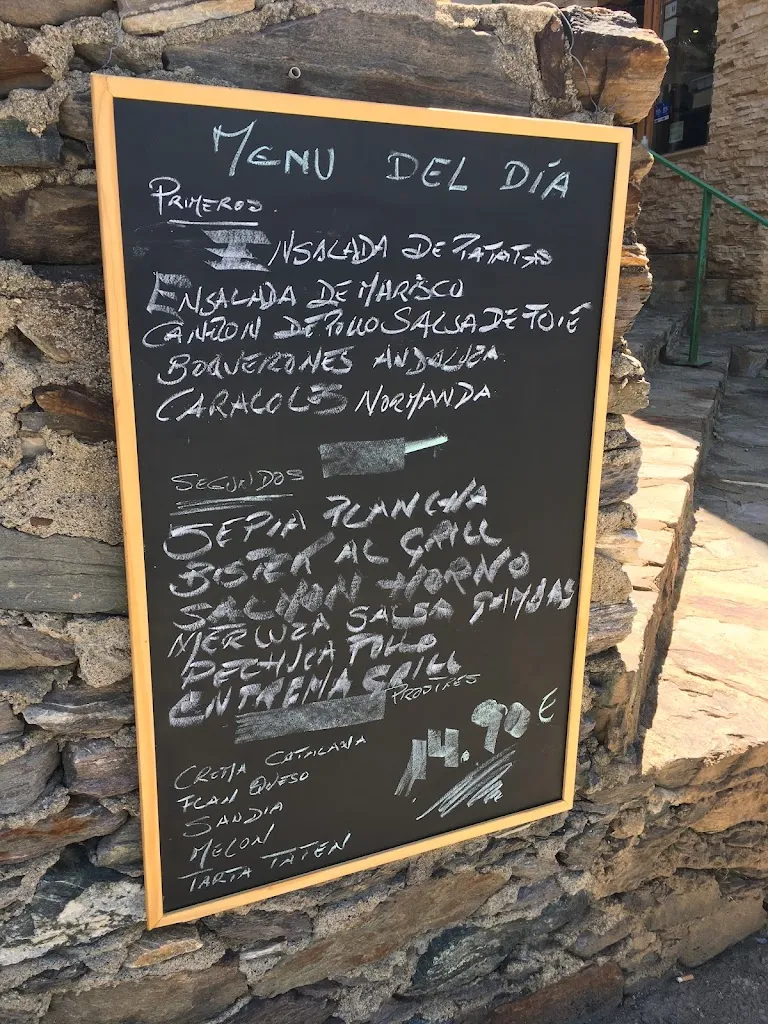 MENU DEL DÍA
PRIMEROS
ENSALADA DE PATATAS
ENSALADA DE MARISCO
CANELON DE POLLO SALSA DE FOIE
BOQUERONES ANDALUZA
CARACOLES NORMANDA
SEGUNDOS
SEPIA PLANCHA
BISTEK AL GRILL
SALMON HORNO
MERLUZA SALSA GAMBAS
PECHUGA POLLO
ENTREMA GRILL
POSTRES
14.90 €
CREMA CATALANA
FLAN QUESO
SANDIA
MELON
TARTA TATEN